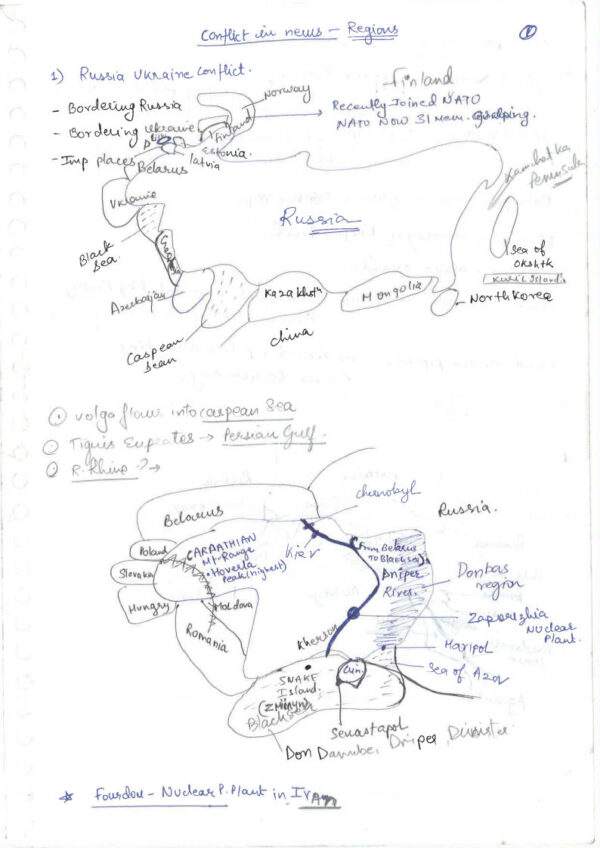 Conflict in news - Regions
①
1) Russia Ukraine conflict.
Finland
- Bordering Russia
Norway
Recently Joined NATO
- Bordering Ukraine
Finland
NATO Now 31 mem. Grouping.
Estonia.
- Imp places
latvia
Belarus
Kamchatka
Peninsula
Ukraine
Russia
Black
Sea.
Georgia
Sea of
Okshtk
Kuril Islands
Azerbaijan
Kazakhstn
Mongolia
North Korea
Caspean
Sean
China
① Volga flows into caspean Sea
○ Tigris Eupeates → Persian Gulf.
○ R. Rhine ? →
Chernobyl
Belarus
Russia.
Poland
CARPATHIAN
Mt. Range
• Hoverla
Peak (highest)
Kiev
(From Belarus
To Black sea)
Slovakia
Dniper
River.
Donbas
region
Hungry
Moldova
Zaporizhia
Nuclear
Plant.
Romania
Kherson
Maripol
SNAKE
Island.
(Zmiinyn)
Crim.
Sea of Azov
Black Sea
Sevastapol
Don Dannube, Dniper, Dinister
* Fourdou - Nuclear P. Plant in Iran